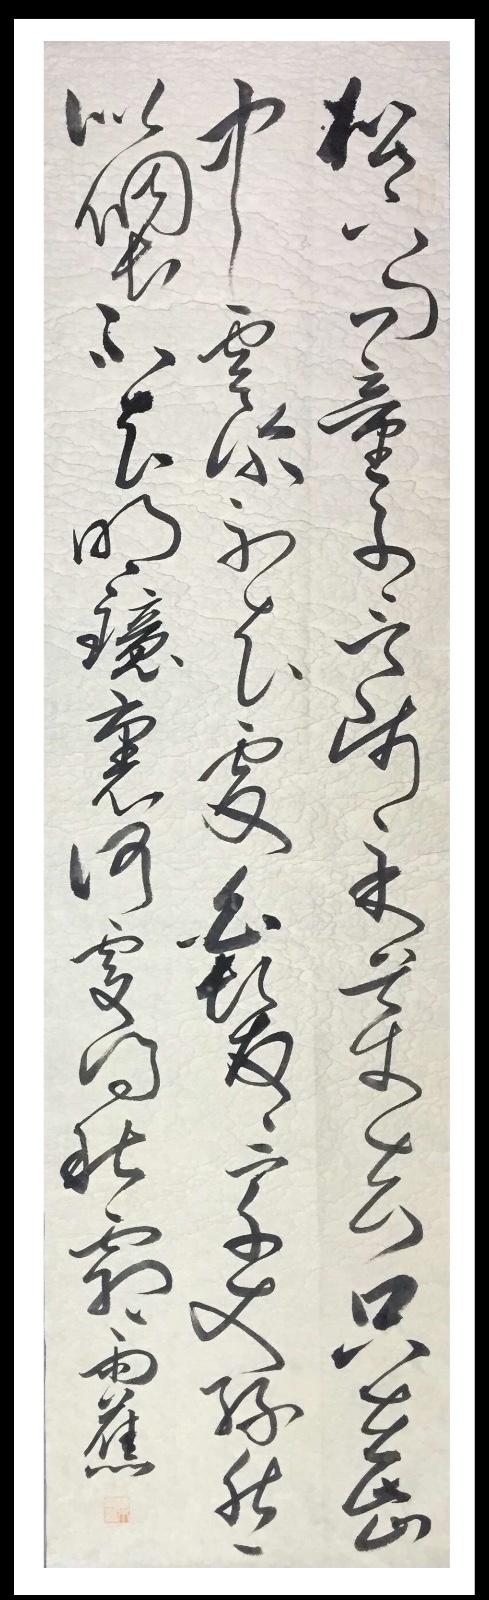 松下問童子言師采藥去只在此山
中雲深不知處白髮三千丈緣愁
似個長不知明鏡裏何處得秋霜雨蕉